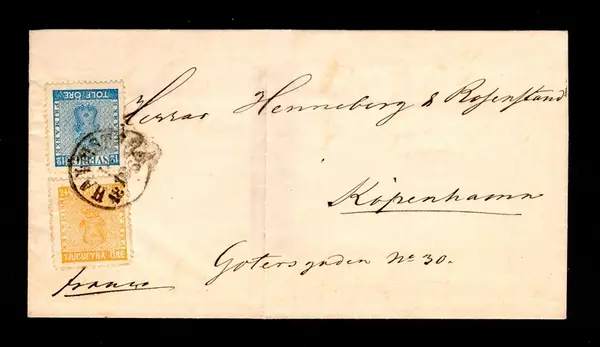 TOLF ÖRE
SVERIGE
TJUGUFYRA ÖRE
Herrar Henneberg & Rosenstand
Köpenhamn
Gotersgaden No 30.
franco